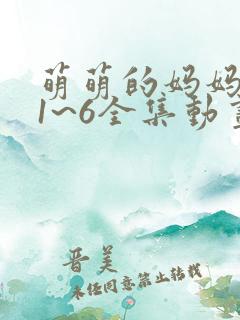 萌萌的妈妈
1~6全集动
晋美
未经同意禁止转载